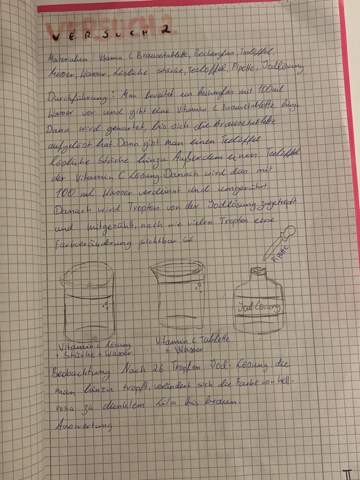 VERSUCH 2
Materialien: Vitamin C Brausetablette, Bechergläs, Teelöffel,
Messer, Wasser, lösliche Stärke, Teelöffel, Pipette, Jodlösung
Durchführung: Man bereitet ein Becherglas mit 100ml
Wasser vor und gibt eine Vitamin C Brausetablette hinzu.
Dann wird gewartet, bis sich die Brausetablette
aufgelöst hat. Dann gibt man einen Teelöffel
lösliche Stärke hinzu. Außerdem einen Teelöffel
der Vitamin C Lösung. Danach wird das mit
100 ml Wasser verdünnt und umgerührt.
Danach wird Tropfen von der Jodlösung
und mitgezählt, nach wie vielen Tropfen eine
Farbveränderung sichtbar ist
Pipette
Jodlösung
Vitamin C Lösung
+ Stärke + Wasser
Vitamin C Tablette
+ Wasser
Beobachtung: Nach 26 Tropfen Jod-Lösung die
man hinzu tropft, verändert sich die Farbe von hell-
rosa zu dunklem lila bis braun.
Auswertung